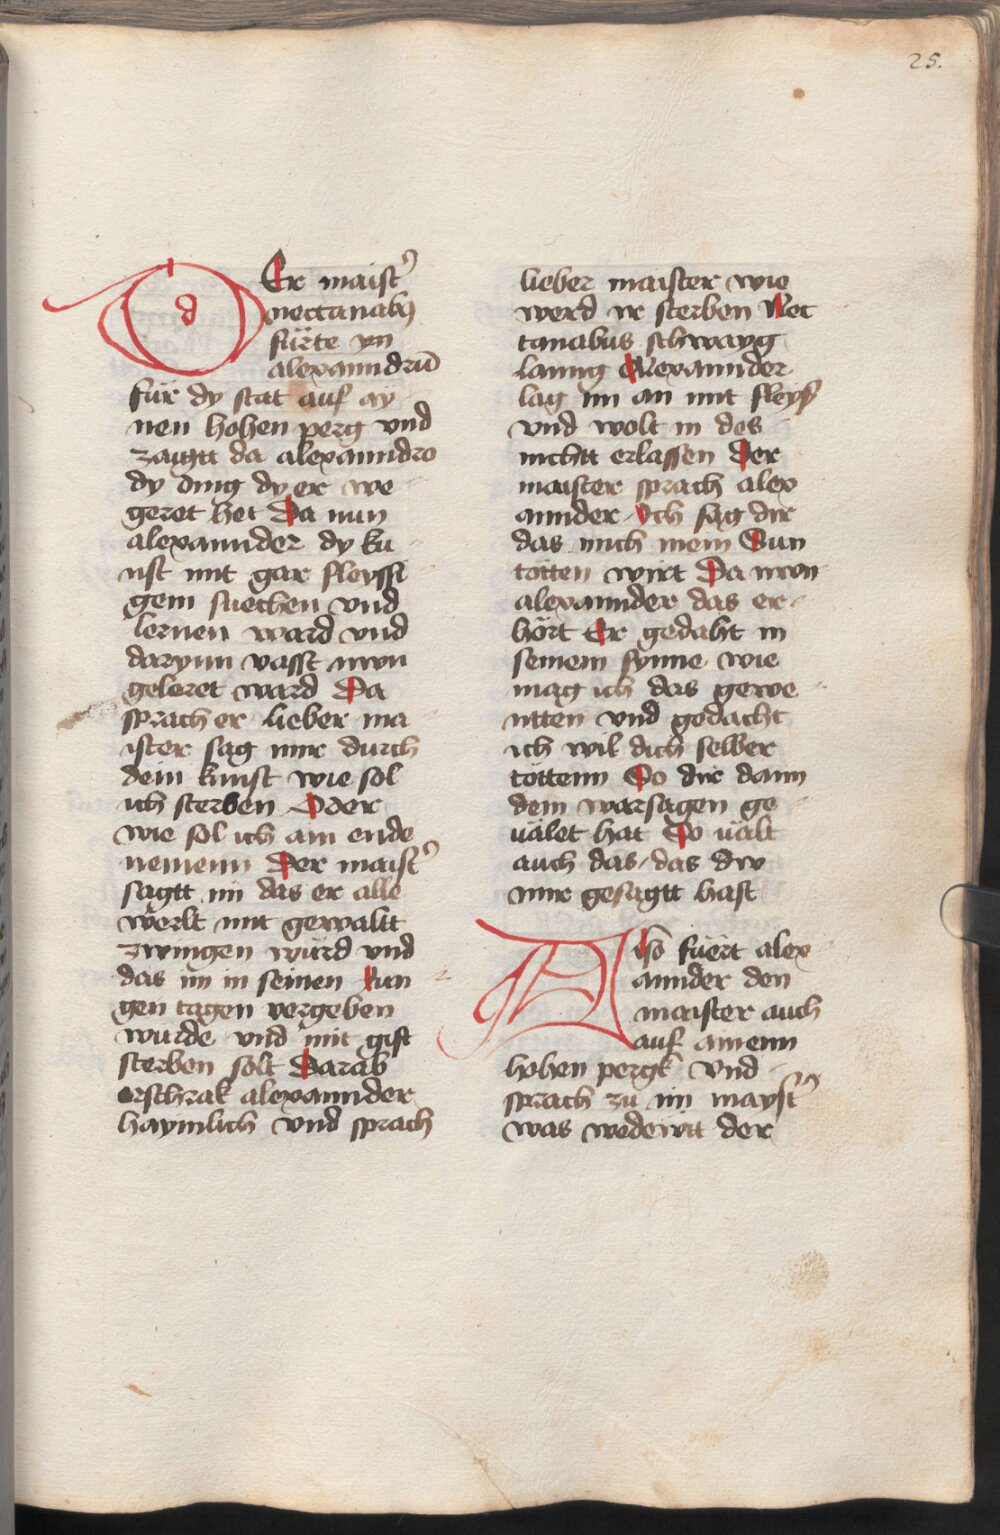 25.
Er maist᾽
nectanabꝫ
fürte yn
alexanndrū
für dy stat auf ay
nen hohen perg vnd
zaigtt da alexanndro
dy ding dy er we
geret het Da nun
alexannder dy ku
nst mit gar fleyssi
gem suechen vnd
lernen ward vnd
darynn vasst nwn
geleret ward Da
sprach er lieber ma
ister sag mir durch
dein kunst wie sol
ich sterben Oder
wie sol ich ain ende
nemenn Der maist᾽
sagtt im das er alle
werlt mit gewaltt
zwingen würd vnd
das im in seinen Iun
gen tagen vergeben
wurde vnd mit gift
sterben solt Darab
erschrak alexannder
haymlich vnd sprach
lieber maister wie
werd ir sterben Nec
tanabus schwayg
lanng Alexannder
lag im an mit fleyß
vnd wolt in des
nichtt erlassen Der
maister sprach alex
annder Ich sag dir
das mich mein Sun
tötten wirt Da nwn
alexannder das er
hört Er gedaht in
seinem synne wie
mag ich das gewe
ntten vnd gedacht
ich wil dich selber
töttenn So dir dann
dein warsagen ge
uälet hat So uält
auch das das dw
mir gesagtt hast
Also fuert alex
annder den
maister auch
auf ainenn
hohen pergk vnd
sprach zu im mayst᾽
was wedewtt der